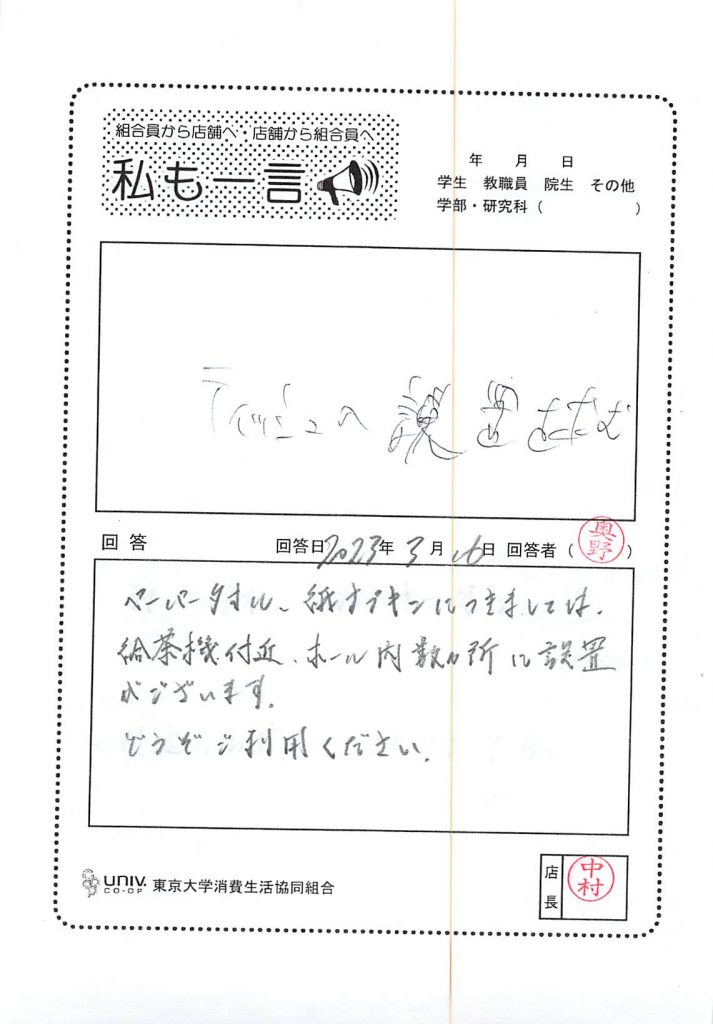 組合員から店舗へ・店舗から組合員へ
私も一言
年 月 日
学生 教職員 院生 その他
学部・研究科( )
ティッシュ 設置
回答
回答日2023年3月16日 回答者(奥野)
ペーパータオル、紙ナプキンにつきましては、
給茶機付近、ホール内数カ所に設置
がございます。
どうぞご利用ください。
UNIV.
CO-OP
東京大学消費生活協同組合
店長
中村